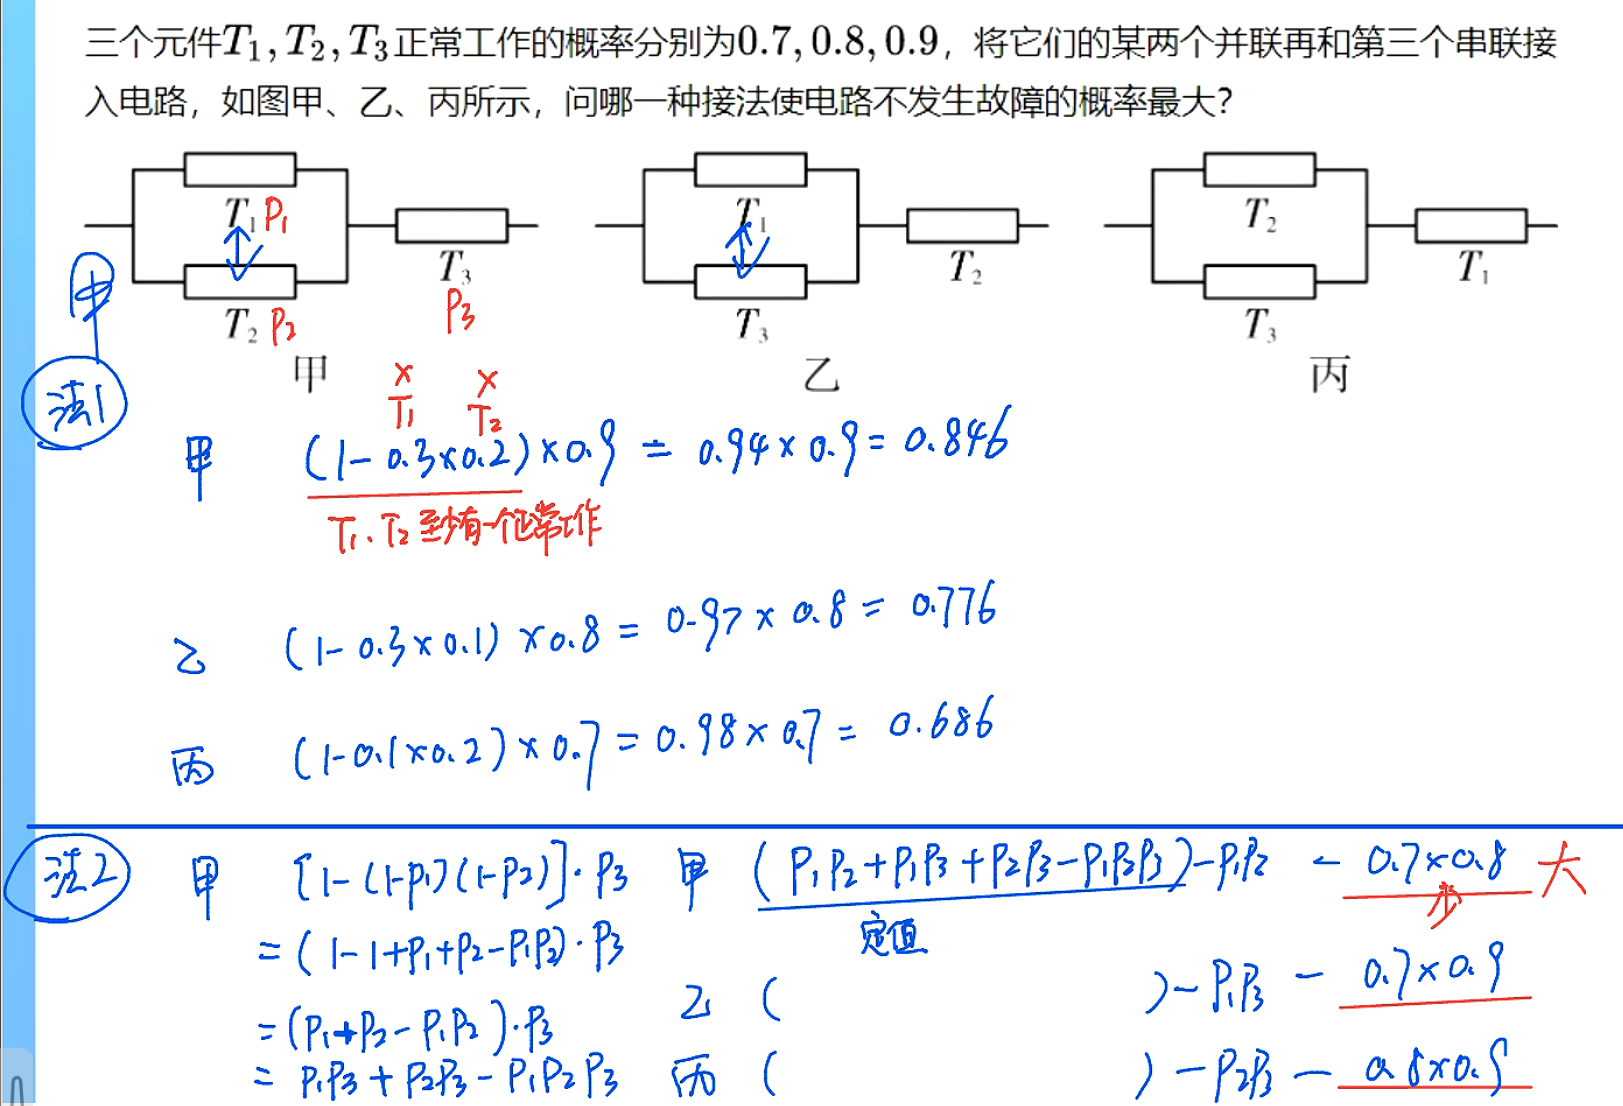 三个元件T₁, T₂, T₃正常工作的概率分别为0.7, 0.8, 0.9，将它们的某两个并联再和第三个串联接
入电路，如图甲、乙、丙所示，问哪一种接法使电路不发生故障的概率最大？
T₁ P₁
T₂ P₂
T₃
P₃
甲
T₁
T₃
T₂
乙
T₂
T₃
T₁
丙
甲
法1
× ×
T₁ T₂
甲 (1-0.3×0.2)×0.9 = 0.94×0.9 = 0.846
T₁、T₂至少有一个正常工作
乙 (1-0.3×0.1)×0.8 = 0.97×0.8 = 0.776
丙 (1-0.1×0.2)×0.7 = 0.98×0.7 = 0.686
法2
甲 [1-(1-P₁)(1-P₂)]·P₃
=(1-1+P₁+P₂-P₁P₂)·P₃
=(P₁+P₂-P₁P₂)·P₃
= P₁P₃+P₂P₃-P₁P₂P₃
甲 (P₁P₂+P₁P₃+P₂P₃-P₁P₂P₃)-P₁P₂ - 0.7×0.8 大
定值
乙 ( )-P₁P₃ - 0.7×0.9
丙 ( )-P₂P₃ - 0.8×0.9